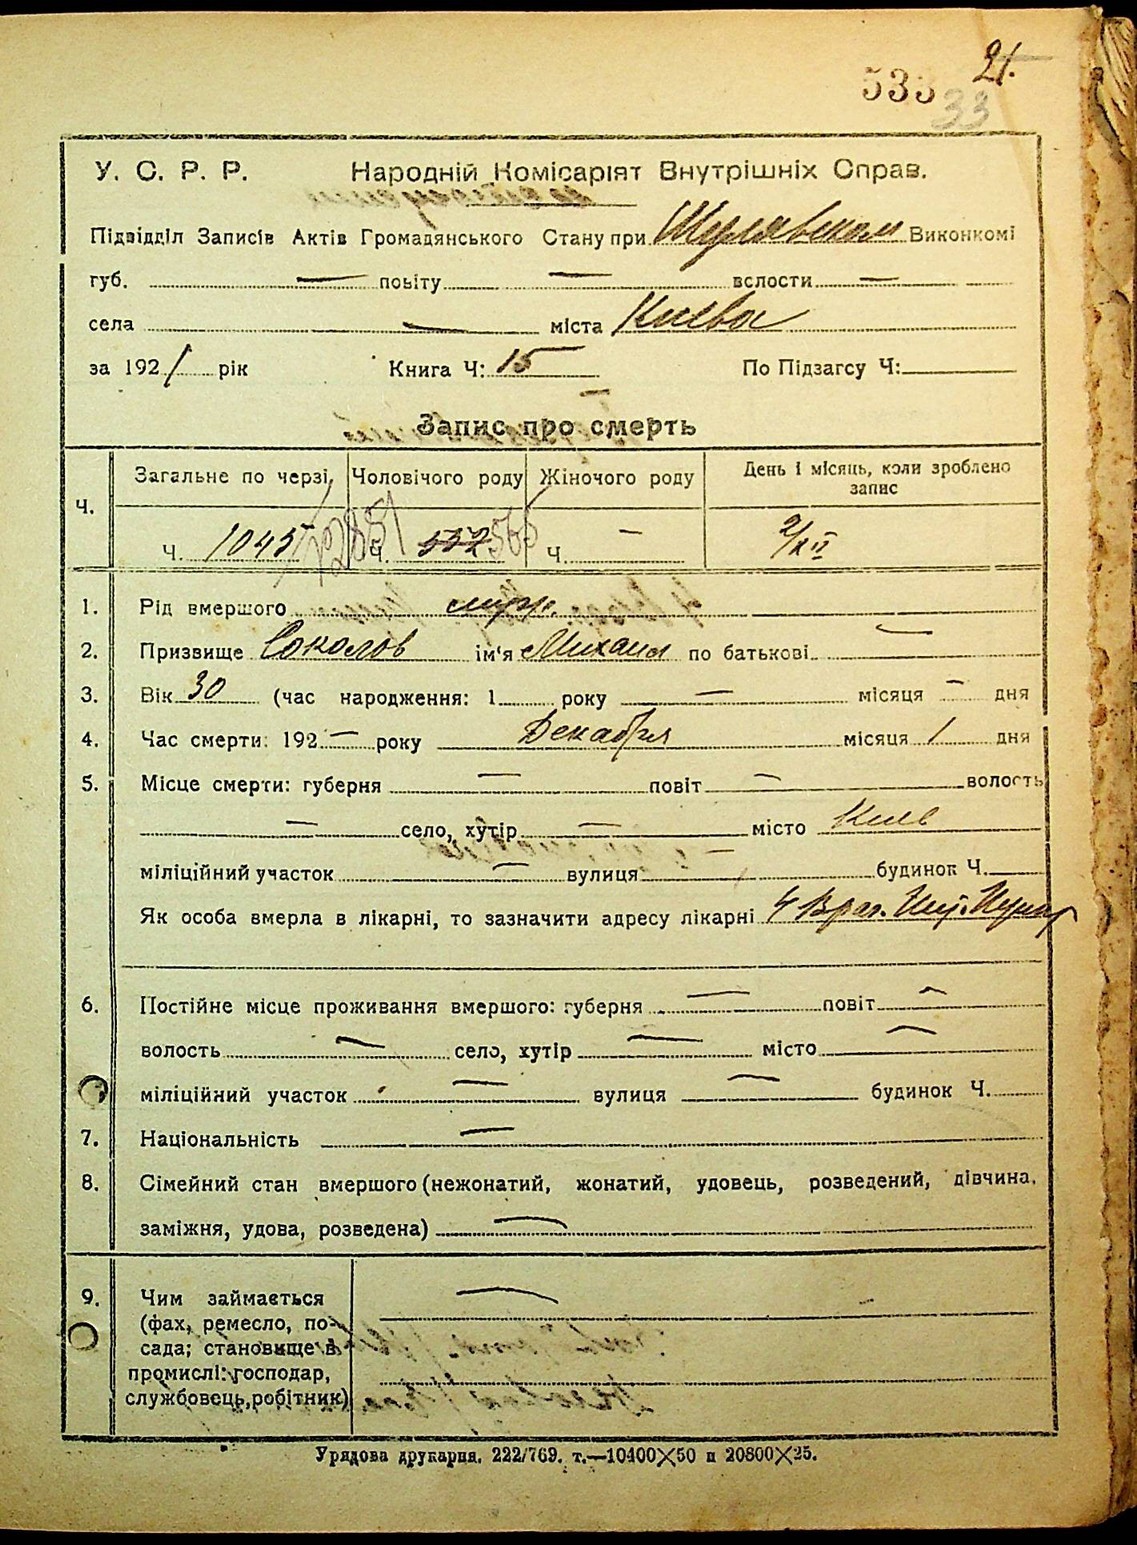 533 21.
33
У. С. Р. Р. Народній Комісаріят Внутрішніх Справ.
Підвідділ Записів Актів Громадянського Стану при Шулявском Виконкомі
губ. — повіту — волости —
села — міста Киева
за 1921 рік Книга Ч: 15 По Підзагсу Ч:
Запис про смерть
Ч. Загальне по черзі Чоловічого роду Жіночого роду День і місяць, коли зроблено запис
Ч. 1045 Ч. 532 565 Ч. — 2/XII
1. Рід вмершого муж.
2. Призвище Соколов ім'я Михаил по батькові —
3. Вік 30 (час народження: 1 року — місяця — дня
4. Час смерти: 192 — року Декабря місяця 1 дня
5. Місце смерти: губерня — повіт — волость
— село, хутір — місто Киев
міліційний участок — вулиця — будинок Ч.
Як особа вмерла в лікарні, то зазначити адресу лікарні 4
6. Постійне місце проживання вмершого: губерня — повіт —
волость — село, хутір — місто —
міліційний участок — вулиця — будинок Ч.
7. Національність —
8. Сімейний стан вмершого (нежонатий, жонатий, удовець, розведений, дівчина,
заміжня, удова, розведена) —
9. Чим займається —
(фах, ремесло, по-
сада; становище в
промислі: господар,
службовець, робітник)
Урядова друкарня. 222/769. т.—10400×50 и 20800×25.